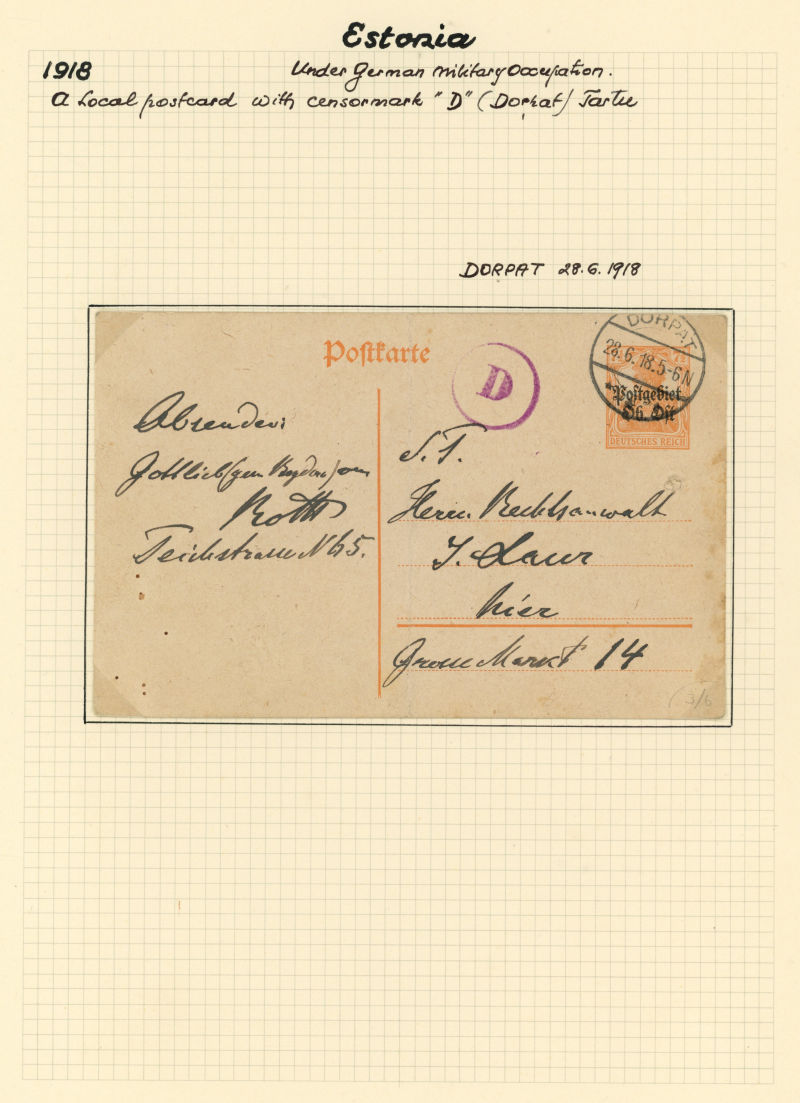 Estonia
1918
Under German military Occupation.
A Local postcard with censormark "D" (Dorpat) Tartu
DORPAT 28.6.1918
Postkarte
D
DORPAT
28.6.18.5-6N
7½
Postgebiet
Ob. Ost
DEUTSCHES REICH
Absender:
Gottlieb (gen
Roth
Teichstrasse N 65.
S. T.
Herrn Rechtsanwalt
J. Laur
hier
Grosse Markt 14
(3/6